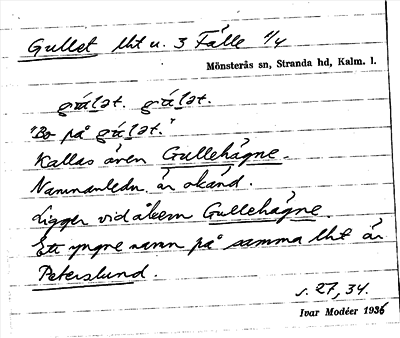 Gullet lht u. 3 Fälle 1/4
Mönsterås sn, Stranda hd, Kalm. l.
"Bo på
Kallas även Gullehägne.
Namnanledn. är okänd.
Ligger vid åkern Gullehägne.
Ett yngre namn på samma lht är
Peterslund.
s. 27, 34.
Ivar Modéer 1936